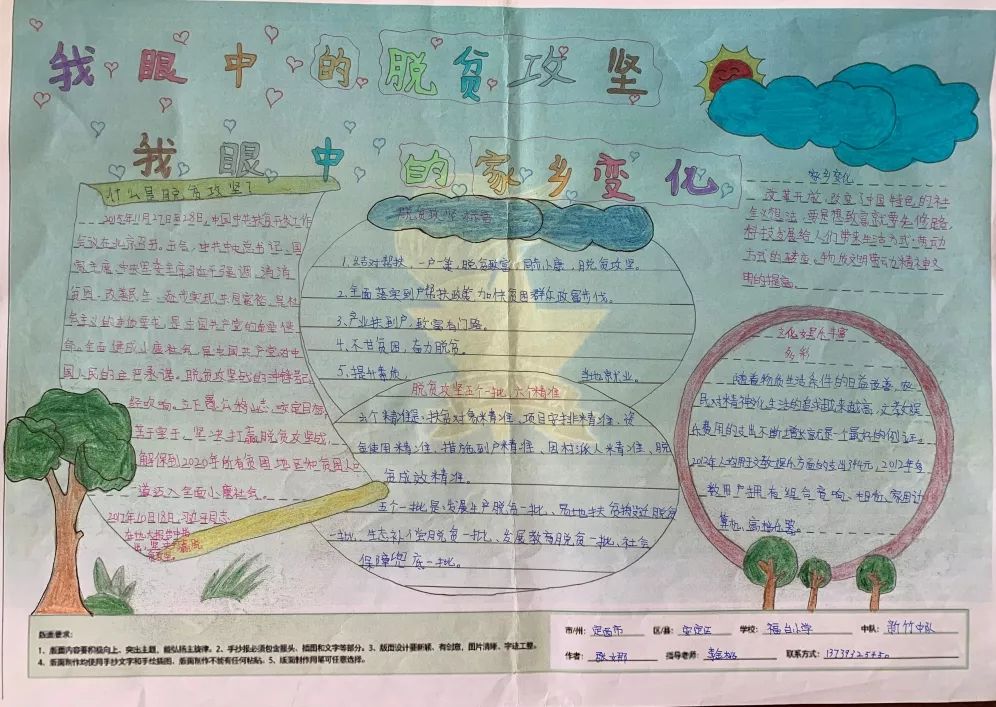 我眼中的脱贫攻坚
我眼中的家乡变化
什么是脱贫攻坚?
2015年11月27日至28日,中国中共扶贫开发工作
会议在北京召开。中共中央总书记、国
家主席、中央军委主席习近平强调,消消
贫困、改善民生、逐步实现共同富裕,是社
会主义的本质要求,是中国共产党的重要使
命。全面建成小康社会,是中国共产党对中
国人民的庄严承诺。脱贫攻坚战的冲锋号已
经吹响。立下愚公移山志,咬定目标、
苦干实干,坚决打赢脱贫攻坚战,
确保到2020年所有贫困地区和贫困人口
一道迈入全面小康社会。
2017年10月18日,习近平同志
脱贫攻坚标语
1.结对帮扶,一户一策,脱贫致富,同奔小康,脱贫攻坚。
2.全面落实到户帮扶政策,加快贫困群众致富步伐。
3、产业扶到户,致富有门路。
4、不甘贫困,奋力脱贫。
5、提升素质, 当地就业。
脱贫攻坚五个一批,六个精准
六个精准是:扶贫对象精准、项目安排精准、资
金使用精准、措施到户精准、因村派人精准、脱
贫成效精准。
五个一批是:发展生产脱贫一批、易地扶贫搬迁脱贫
一批、生态补偿脱贫一批、发展教育脱贫一批、社会
保障兜底一批。
家乡变化
改革开放,改变了中国特色的社
会主义想法,要想想致富就要先修路,
科技发展给人们带来生活方式、劳动
方式的转变。物质文明带动精神文
明的提高。
文化娱乐丰富
多彩
随着物质生活条件的日益改善,农
民对精神文化生活的追求越来越高,文教娱
乐费用的支出不断增长就是一个最好的例证。
2012年人均用于文教娱乐方面的支出394元,2012年每
数用户拥有组合音响、相机、家用计
算机、高档乐器。
版面要求:
1、版面内容要积极向上、突出主题,能弘扬主旋律。2、手抄报必须包含报头、插图和文字等部分。3、版面设计要新颖、有创意,图片清晰、字迹工整。
4、版面制作均使用手抄文字和手绘插图,版面制作不能有任何粘贴。5、版面制作用笔可任意选择。
市/州:定西市 区/县:安定区 学校:福台小学 中队:新竹中队
作者: 指导老师: 联系方式: